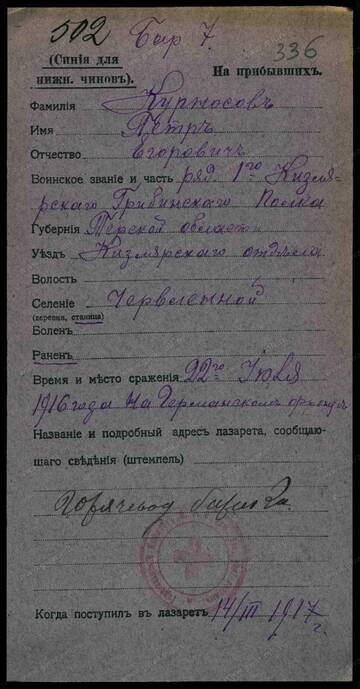 502 Бар 7.
336
(Синія для
нижн. чиновъ).
На прибывшихъ.
Фамилія Курносовъ
Имя Петръ
Отчество Егоровичъ
Воинское званіе и часть ряд. 1го Кизля-
рскаго Гребинскаго Полка
Губернія Терской области
Уѣздъ Кизлярскаго отдѣла
Волость
Селеніе Червленной
(деревня, станица)
Боленъ
Раненъ
Время и мѣсто сраженія 22го Іюля
1916 года на Германскомъ фронтѣ
Названіе и подробный адресъ лазарета, сообщаю-
щаго свѣдѣнія (штемпель)
Горячевод
Когда поступилъ въ лазаретъ 14/III 1917 г.